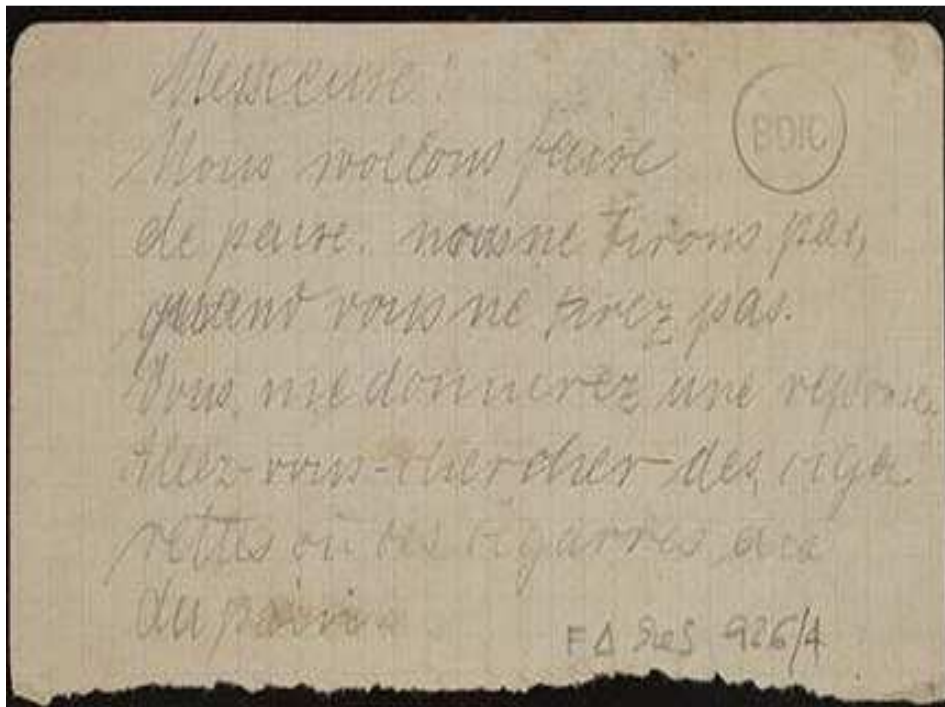 Messieurs!
BDIC
Nous wollons faire
de paire. nous ne tirons pas,
quant vous ne tirez pas.
Vous me donnerez une réponse.
Allez-vous-chercher-des ciga
rettes ou des cigarres
du
F Δ Rés 926/4